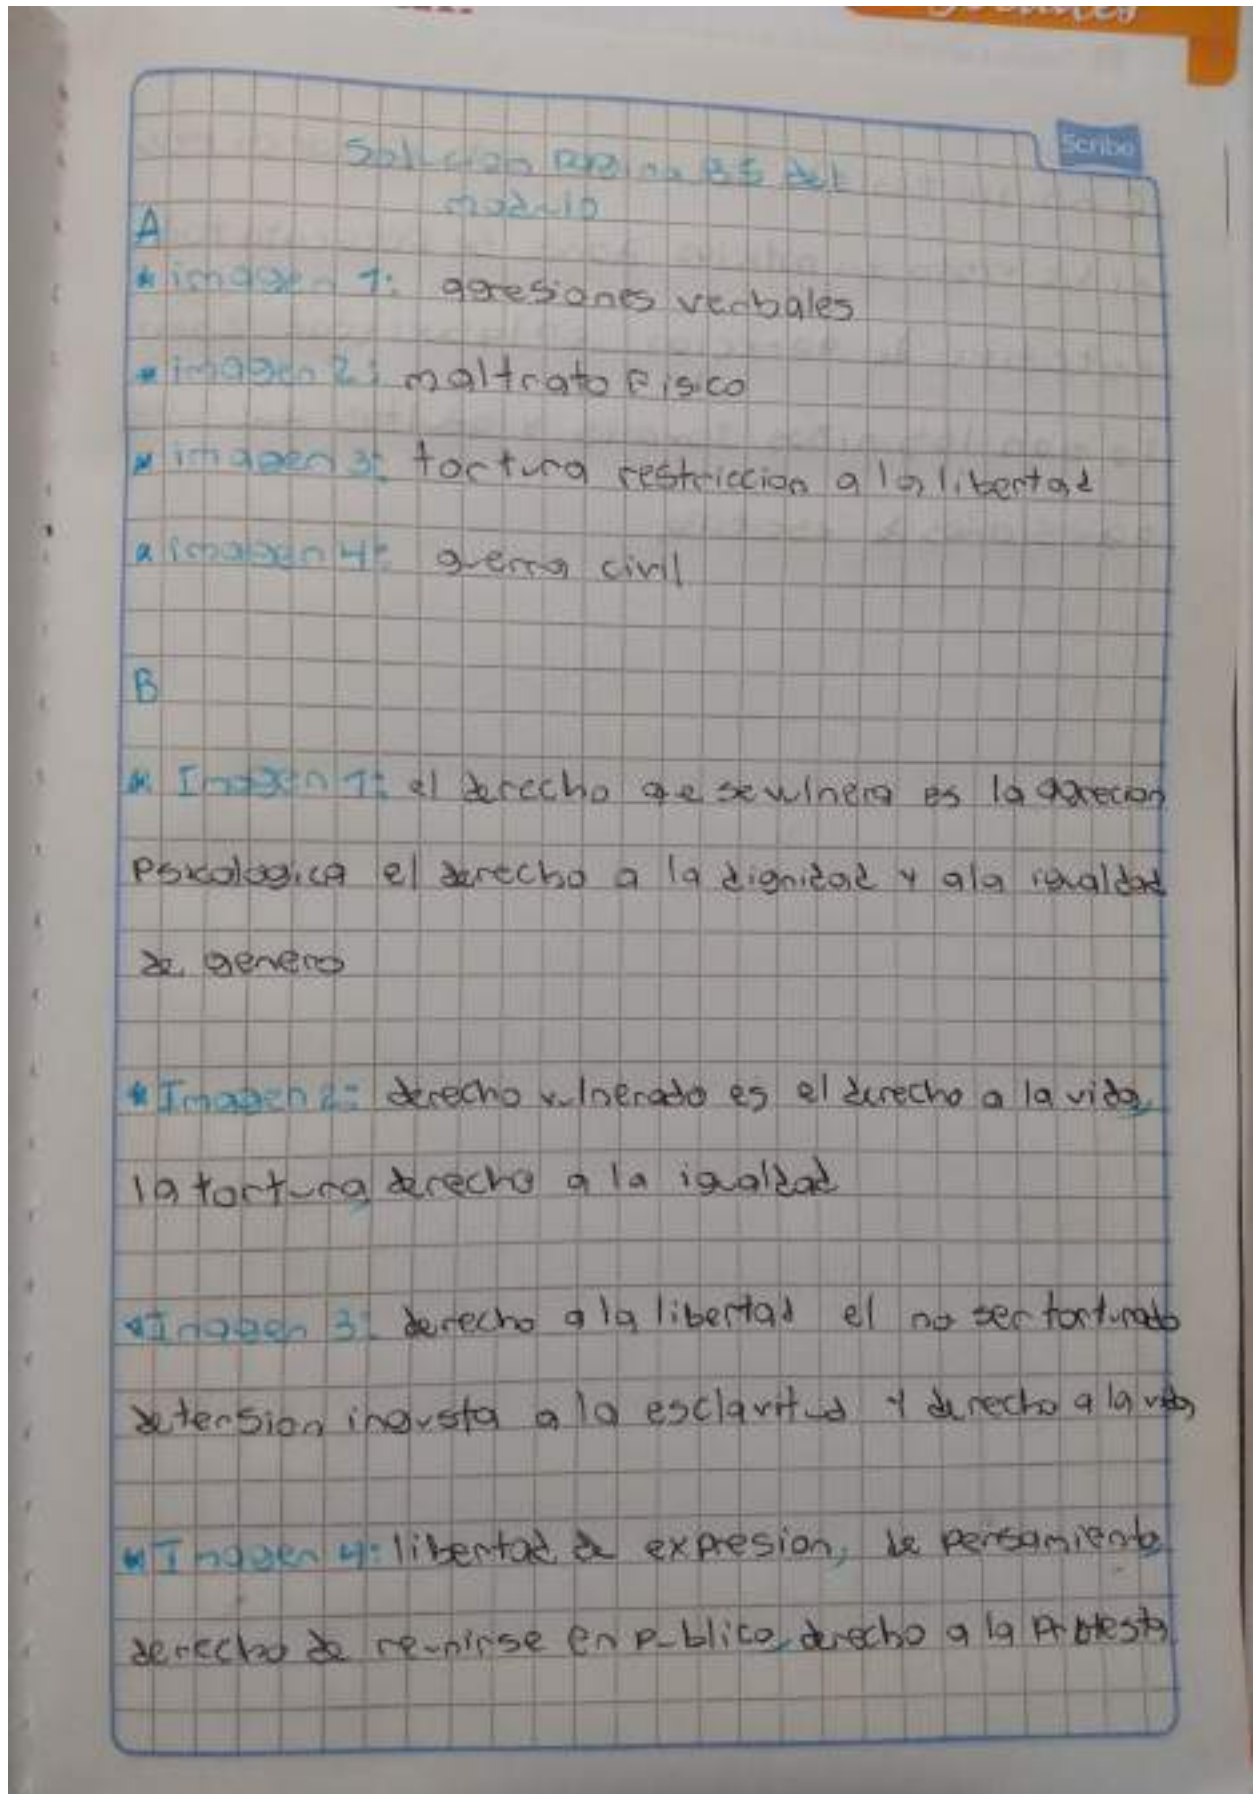 Sociales
Scribe
Solucion pagina 85 del
modulo
A
* imagen 1: agresiones verbales
* imagen 2: maltrato fisico
* imagen 3: tortura restriccion a la libertad
* imagen 4: guerra civil
B
* Imagen 1: el derecho que se vulnera es la agrecion
psicologica el derecho a la dignidad y a la igualdad
de genero
* Imagen 2: derecho vulnerado es el derecho a la vida,
la tortura, derecho a la igualdad
* Imagen 3: derecho a la libertad el no ser torturado
detension ingusta a la esclavitud y derecho a la vida
* Imagen 4: libertad de expresion, de pensamiento
derecho de reunirse en publico, derecho a la protesta